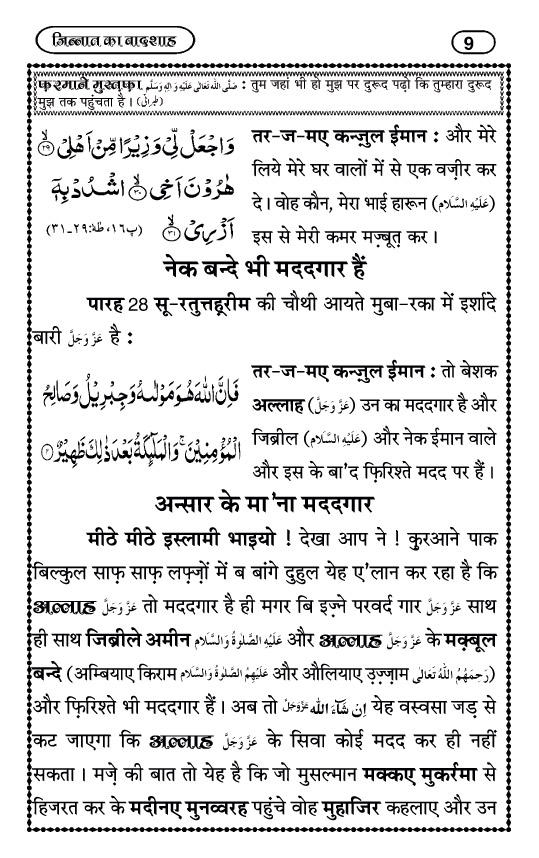 जिन्नात का बादशाह
9
फ़रमाने मुस्तफ़ा صَلَّى اللّٰهُ تَعَالٰى عَلَيْهِ وَاٰلِهٖ وَسَلَّم : तुम जहां भी हो मुझ पर दुरूद पढ़ो कि तुम्हारा दुरूद
मुझ तक पहुंचता है। (طبرانی)
وَاجْعَلْ لِّیْ وَزِیْرًا مِّنْ اَهْلِیْ ۙ﴿۲۹﴾
هٰرُوْنَ اَخِی ۙ﴿۳۰﴾ اشْدُدْ بِهٖۤ
اَزْرِیْ ۙ﴿۳۱﴾ (پ١٦، طٰهٰ: ٢٩ـ٣١)
तर-ज-मए कन्ज़ुल ईमान : और मेरे
लिये मेरे घर वालों में से एक वज़ीर कर
दे। वोह कौन, मेरा भाई हारून (عَلَيْهِ السَّلَام)
इस से मेरी कमर मज़्बूत कर।
नेक बन्दे भी मददगार हैं
पारह 28 सू-रतुत्तहूरीम की चौथी आयते मुबा-रका में इर्शादे
बारी عَزَّ وَجَلَّ है :
فَاِنَّ اللّٰهَ هُوَ مَوْلٰىهُ وَ جِبْرِیْلُ وَ صَالِحُ
الْمُؤْمِنِیْنَ ۚ وَ الْمَلٰٓىِٕكَةُ بَعْدَ ذٰلِكَ ظَهِیْرٌ ﴿۴﴾
तर-ज-मए कन्ज़ुल ईमान : तो बेशक
अल्लाह (عَزَّ وَجَلَّ) उन का मददगार है और
जिब्रील (عَلَيْهِ السَّلَام) और नेक ईमान वाले
और इस के बा'द फ़िरिश्ते मदद पर हैं।
अन्सार के मा'ना मददगार
मीठे मीठे इस्लामी भाइयो ! देखा आप ने ! क़ुरआने पाक
बिल्कुल साफ़ साफ़ लफ़्ज़ों में ब बांगे दुहुल येह ए'लान कर रहा है कि
अल्लाह عَزَّ وَجَلَّ तो मददगार है ही मगर बि इज़्ने परवर्द गार عَزَّ وَجَلَّ साथ
ही साथ जिब्रीले अमीन عَلَيْهِ الصَّلٰوةُ وَالسَّلَام और अल्लाह عَزَّ وَجَلَّ के मक़्बूल
बन्दे (अम्बियाए किराम عَلَيْهِمُ الصَّلٰوةُ وَالسَّلَام और औलियाए उ़ज़्ज़ाम رَحِمَهُمُ اللّٰهُ تَعَالٰى)
और फ़िरिश्ते भी मददगार हैं। अब तो اِنْ شَآءَ اللّٰه عَزَّوَجَلَّ येह वस्वसा जड़ से
कट जाएगा कि अल्लाह عَزَّ وَجَلَّ के सिवा कोई मदद कर ही नहीं
सकता। मज़े की बात तो येह है कि जो मुसल्मान मक्कए मुकर्रमा से
हिजरत कर के मदीनए मुनव्वरह पहुंचे वोह मुहाजिर कहलाए और उन